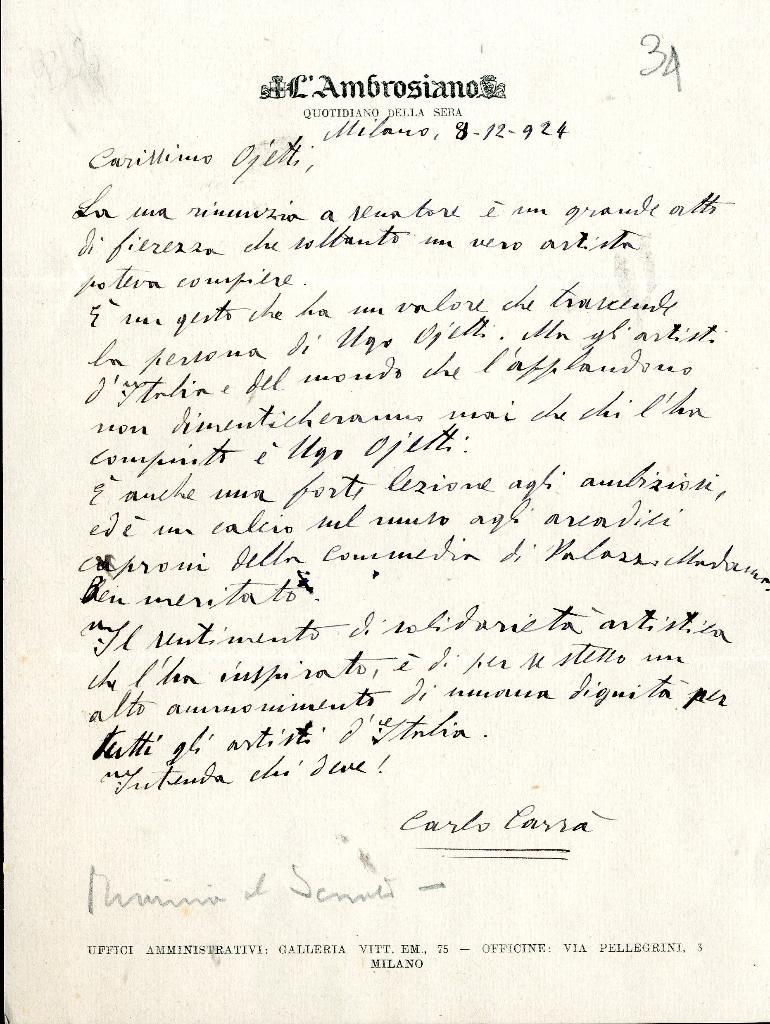 34
L'Ambrosiano
QUOTIDIANO DELLA SERA
Milano, 8-12-924
Carissimo Ojetti,
La sua rinunzia a senatore è un grande atto
di fierezza che soltanto un vero artista
poteva compiere.
È un gesto che ha un valore che trascende
la persona di Ugo Ojetti. Ma gli artisti
d'Italia e del mondo che l'applaudono
non dimenticheranno mai che chi l'ha
compiuto è Ugo Ojetti.
È anche una forte lezione agli ambiziosi,
ed è un calcio sul muso agli arcadici
caproni della Commedia di Palazzo Madama.
Ben meritato.
Il sentimento di solidarietà artistica
che l'ha inspirato, è di per se stesso un
alto ammonimento di umana dignità per
tutti gli artisti d'Italia.
Intenda chi deve!
Carlo Carrà
al Senato —
UFFICI AMMINISTRATIVI: GALLERIA VITT. EM., 75 — OFFICINE: VIA PELLEGRINI, 8
MILANO